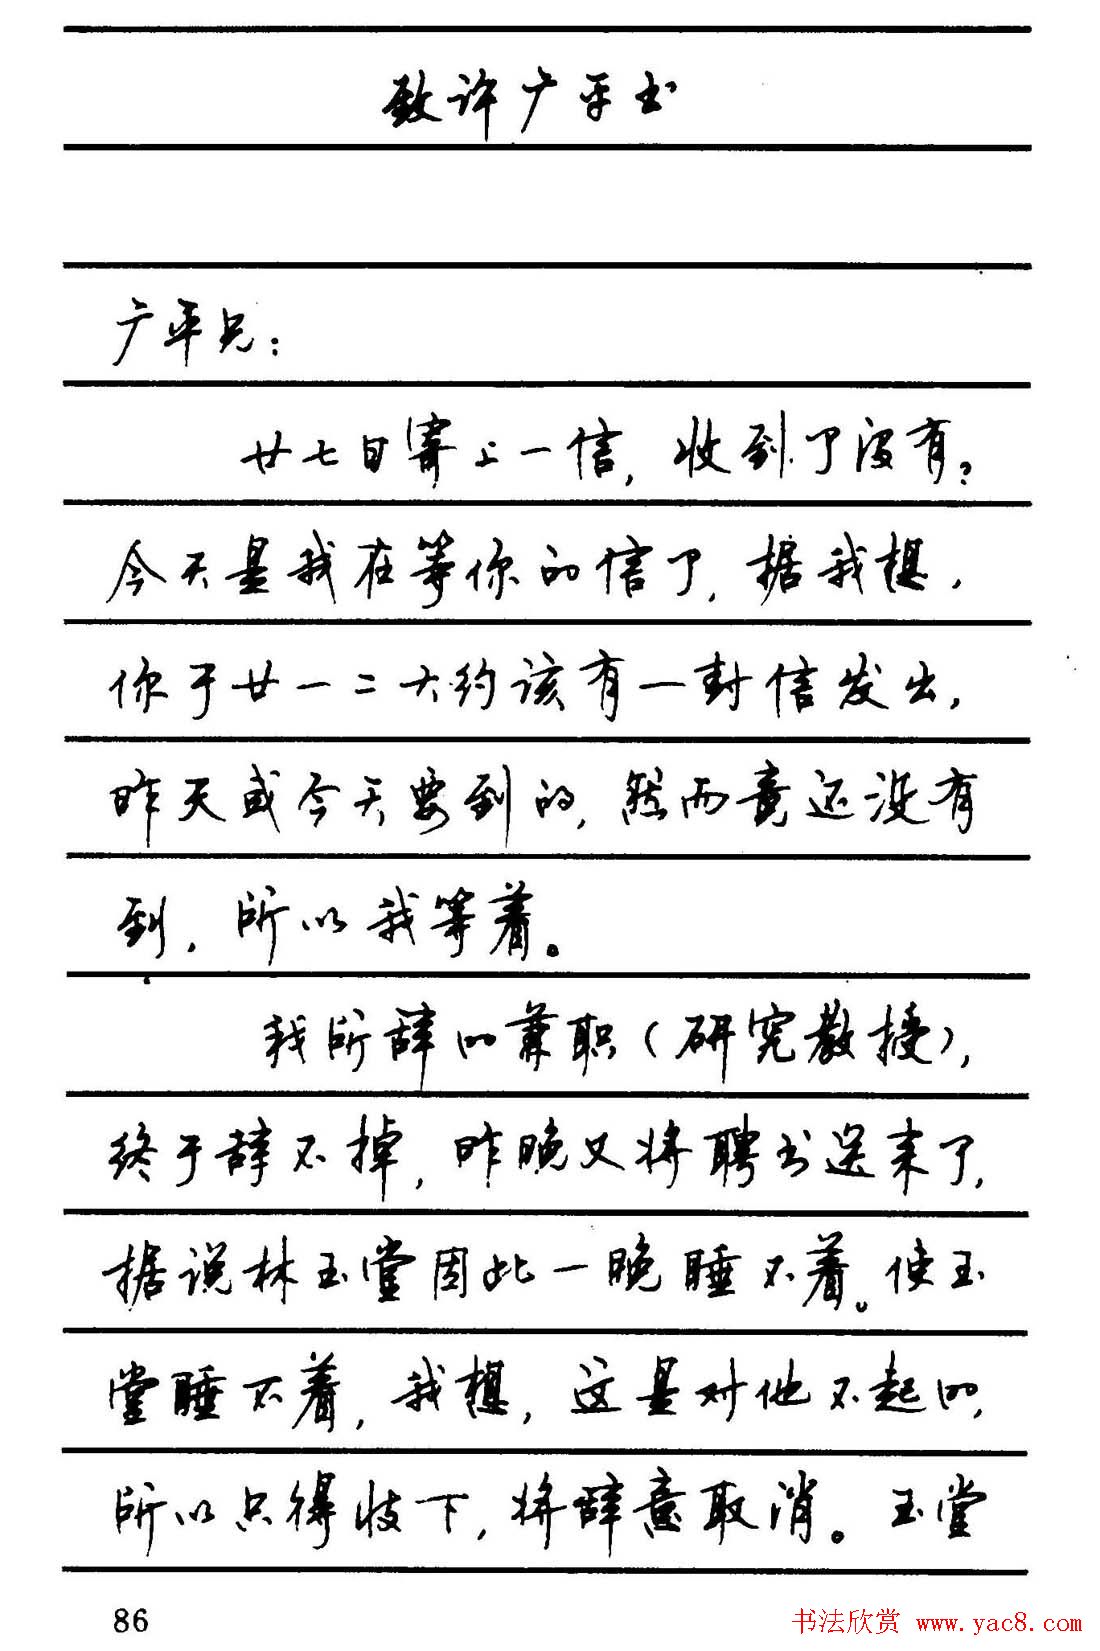 致许广平书
广平兄：
廿七日寄上一信，收到了没有？
今天是我在等你的信了，据我想，
你于廿一二大约该有一封信发出，
昨天或今天要到的，然而竟还没有
到，所以我等着。
我所辞的兼职（研究教授），
终于辞不掉，昨晚又将聘书送来了，
据说林玉堂因此一晚睡不着。使玉
堂睡不着，我想，这是对他不起的，
所以只得收下，将辞意取消。玉堂
86
书法欣赏 www.yac8.com